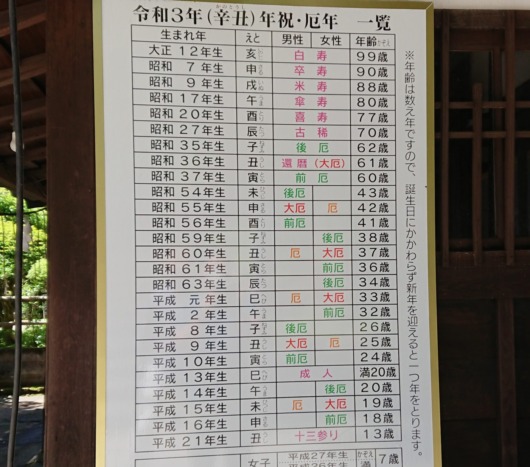 令和3年(辛丑)年祝・厄年 一覧
生まれ年 えと 男性 女性 年齢
大正 12年生 亥 白寿 99歳
昭和 7年生 申 卒寿 90歳
昭和 9年生 戌 米寿 88歳
昭和 17年生 午 傘寿 80歳
昭和 20年生 酉 喜寿 77歳
昭和 27年生 辰 古稀 70歳
昭和 35年生 子 後厄 62歳
昭和 36年生 丑 還暦(大厄) 61歳
昭和 37年生 寅 前厄 60歳
昭和 54年生 未 後厄 43歳
昭和 55年生 申 大厄 厄 42歳
昭和 56年生 酉 前厄 41歳
昭和 59年生 子 後厄 38歳
昭和 60年生 丑 厄 大厄 37歳
昭和 61年生 寅 前厄 36歳
昭和 63年生 辰 後厄 34歳
平成 元年生 巳 厄 大厄 33歳
平成 2年生 午 前厄 32歳
平成 8年生 子 後厄 26歳
平成 9年生 丑 大厄 厄 25歳
平成 10年生 寅 前厄 24歳
平成 13年生 巳 成人 満20歳
平成 14年生 午 後厄 20歳
平成 15年生 未 厄 大厄 19歳
平成 16年生 申 前厄 18歳
平成 21年生 丑 十三参り 13歳
女子 平成27年生 7歳
※年齢は数え年ですので、誕生日にかかわらず新年を迎えると一つ年をとります。